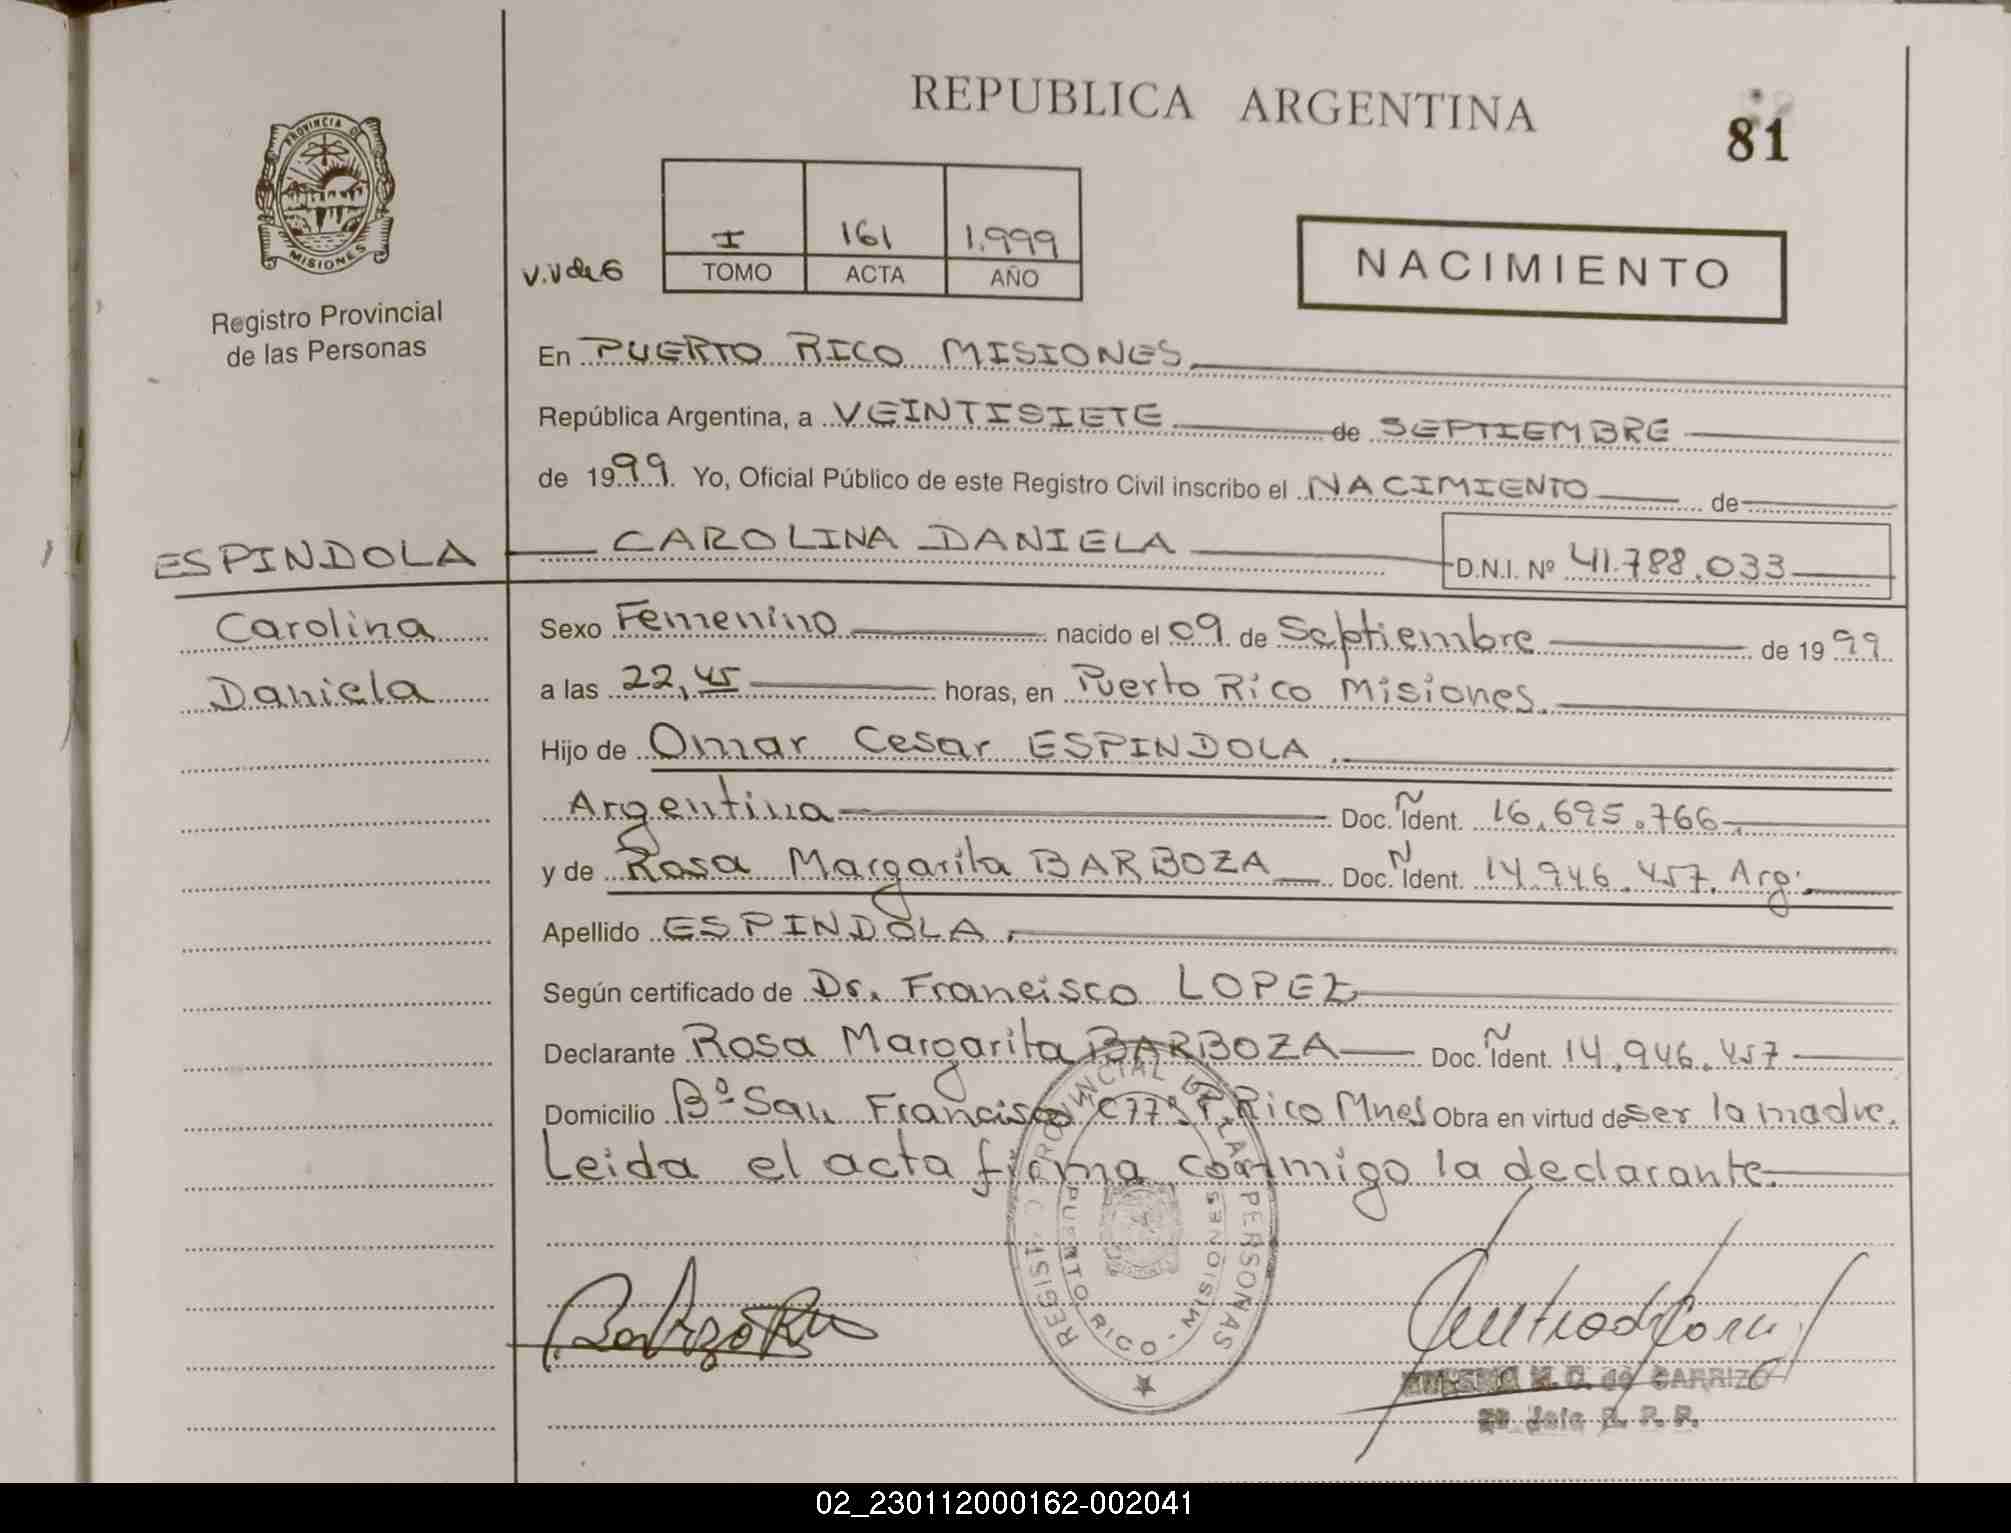 REPUBLICA ARGENTINA
81
PROVINCIA DE
MISIONES
Registro Provincial
de las Personas
v.v de 6
I 161 1.999
TOMO ACTA AÑO
NACIMIENTO
En PUERTO RICO MISIONES
República Argentina, a VEINTISIETE de SEPTIEMBRE
de 1999. Yo, Oficial Público de este Registro Civil inscribo el NACIMIENTO de
ESPINDOLA CAROLINA DANIELA D.N.I. Nº 41.788.033
Carolina
Daniela
Sexo Femenino nacido el 09 de Septiembre de 1999
a las 22,45 horas, en Puerto Rico Misiones.
Hijo de Omar Cesar ESPINDOLA.
Argentina Doc. Ident. 16.695.766.
y de Rosa Margarita BARBOZA Doc. Ident. 14.946.457. Arg.
Apellido ESPINDOLA.
Según certificado de Dr. Francisco LOPEZ
Declarante Rosa Margarita BARBOZA Doc. Ident. 14.946.457
Domicilio Bº San Francisco C773 P. Rico Mnes Obra en virtud de ser la madre.
Leida el acta firma conmigo la declarante.
REGISTRO PROVINCIAL DE LAS PERSONAS
PUERTO RICO - MISIONES
M. D. de CARRIZO
R. P. P.
02_230112000162-002041